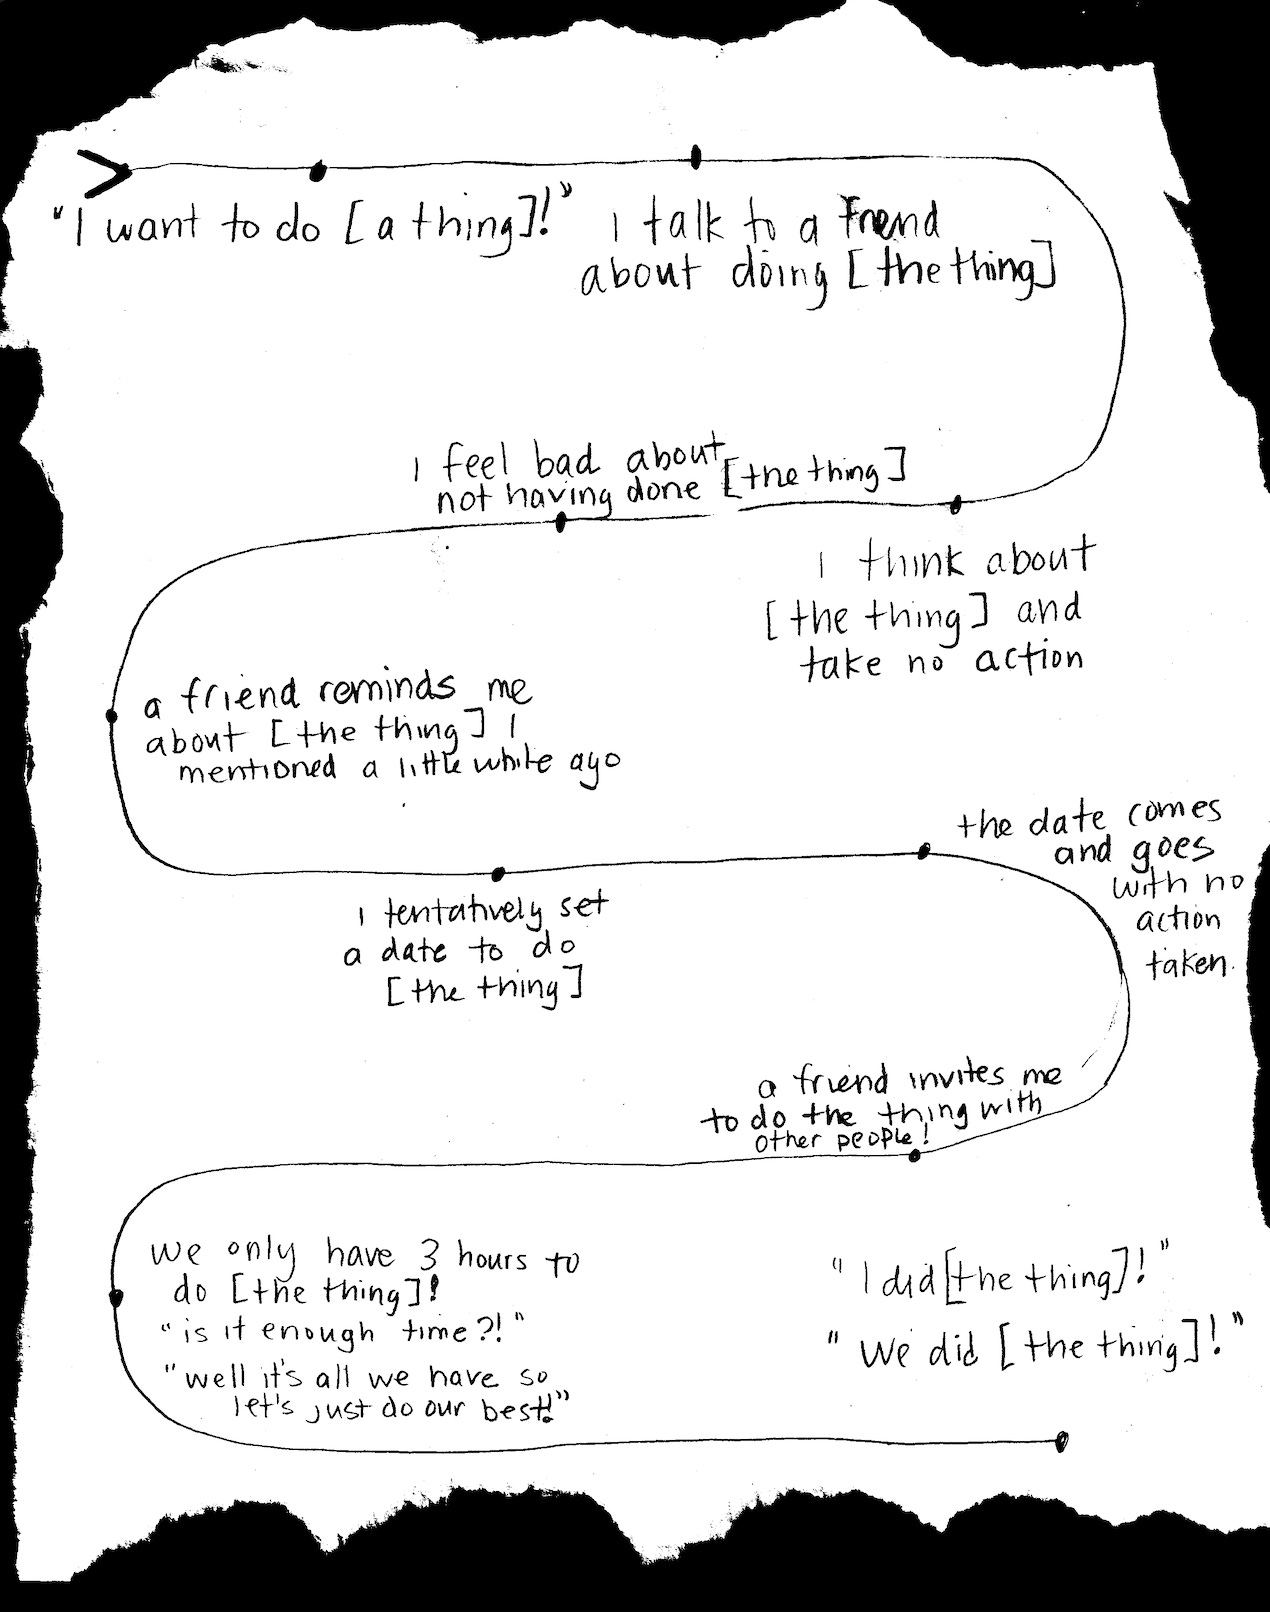 "I want to do [a thing]!"
I talk to a friend
about doing [the thing]
I think about
[the thing] and
take no action
I feel bad about
not having done [the thing]
a friend reminds me
about [the thing] I
mentioned a little while ago
I tentatively set
a date to do
[the thing]
the date comes
and goes
with no
action
taken.
a friend invites me
to do the thing with
other people!
we only have 3 hours to
do [the thing]!
"is it enough time?!"
"well it's all we have so
let's just do our best!"
"I did [the thing]!"
"We did [the thing]!"